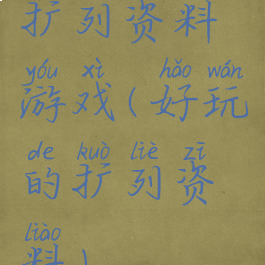 扩列资料
yóu xì hǎo wán
游戏(好玩
de kuò liè zī
的扩列资
liào
料)